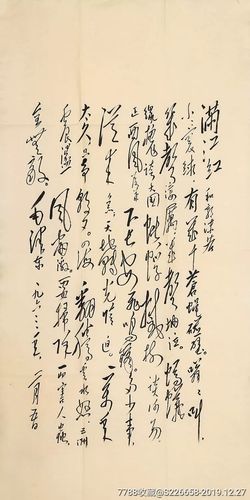 满江红 和郭沫若
小小寰球有几个苍蝇碰壁嗡嗡叫
几声凄厉几声抽泣蚂蚁
缘槐夸大国蚍蜉撼树谈何易
正西风落叶下长安飞鸣镝多少事
从来急天地转光阴迫一万年
太久只争朝夕四海翻腾云水怒五洲
震荡风雷激要扫除一切害人虫
全无敌 毛泽东 一九六三 二月五日
7788收藏@S226658-2019.12.27